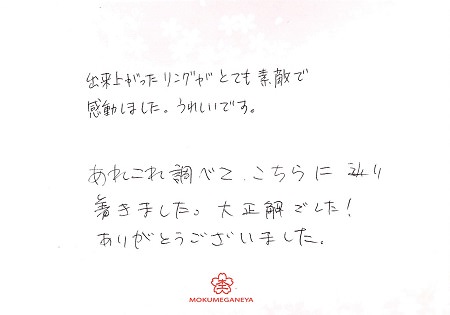 出来上がったリングがとても素敵で
感動しました。うれしいです。
あれこれ調べて、こちらに辿り
着きました。大正解でした!
ありがとうございました。
杢
MOKUMEGANEYA